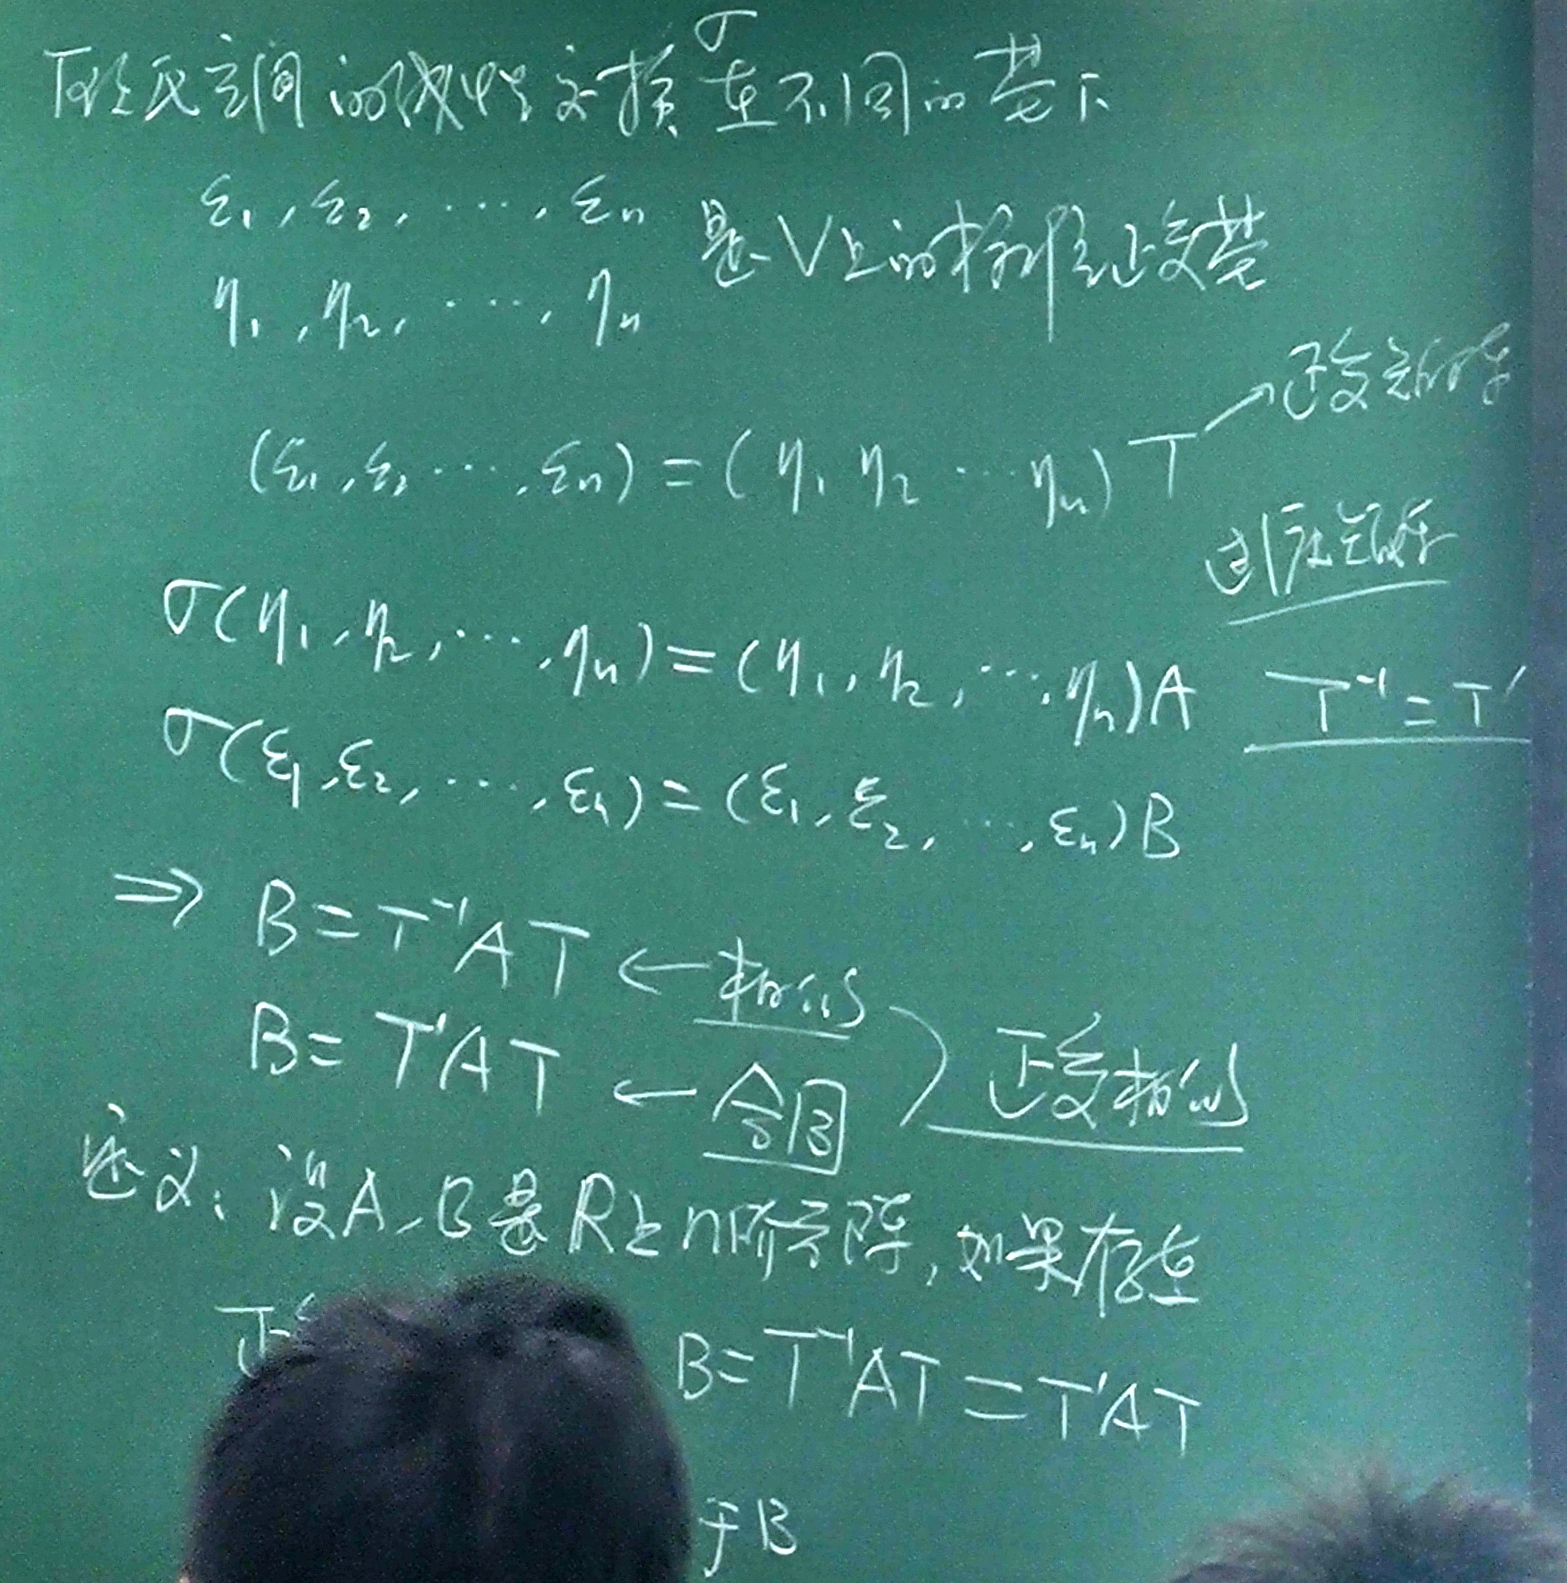 欧氏空间的线性变换σ在不同的基下
ε₁, ε₂, ⋯, εₙ
η₁, η₂, ⋯, ηₙ 是V上的标准正交基
(ε₁, ε₂ ⋯, εₙ) = (η₁ η₂ ⋯ ηₙ) T → 正交矩阵
过渡矩阵
σ(η₁, η₂, ⋯, ηₙ) = (η₁, η₂, ⋯, ηₙ)A T⁻¹ = T'
σ(ε₁, ε₂, ⋯, εₙ) = (ε₁, ε₂, ⋯, εₙ)B
⇒ B = T⁻¹AT ← 相似
B = T'AT ← 合同 ) 正交相似
定义: 设A, B是R上n阶方阵, 如果存在
正 B = T⁻¹AT = T'AT
于B